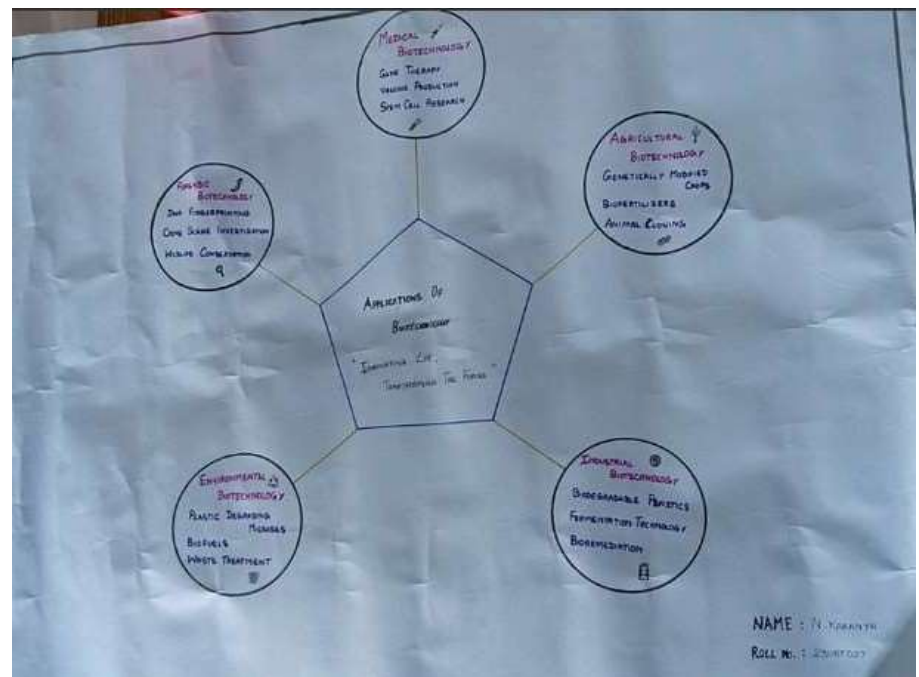 MEDICAL
BIOTECHNOLOGY
GENE THERAPY
VACCINE PRODUCTION
STEM CELL RESEARCH
AGRICULTURAL
BIOTECHNOLOGY
GENETICALLY MODIFIED
CROPS
BIOFERTILISERS
ANIMAL CLONING
FORENSIC
BIOTECHNOLOGY
DNA FINGERPRINTING
CRIME SCENE INVESTIGATION
WILDLIFE CONSERVATION
APPLICATIONS OF
BIOTECHNOLOGY
" INNOVATING LIFE,
TRANSFORMING THE FUTURE "
ENVIRONMENTAL
BIOTECHNOLOGY
PLASTIC DEGRADING
MICROBES
BIOFUELS
WASTE TREATMENT
INDUSTRIAL
BIOTECHNOLOGY
BIODEGRADABLE PLASTICS
FERMENTATION TECHNOLOGY
BIOREMEDIATION
NAME : N.
ROLL NO. :